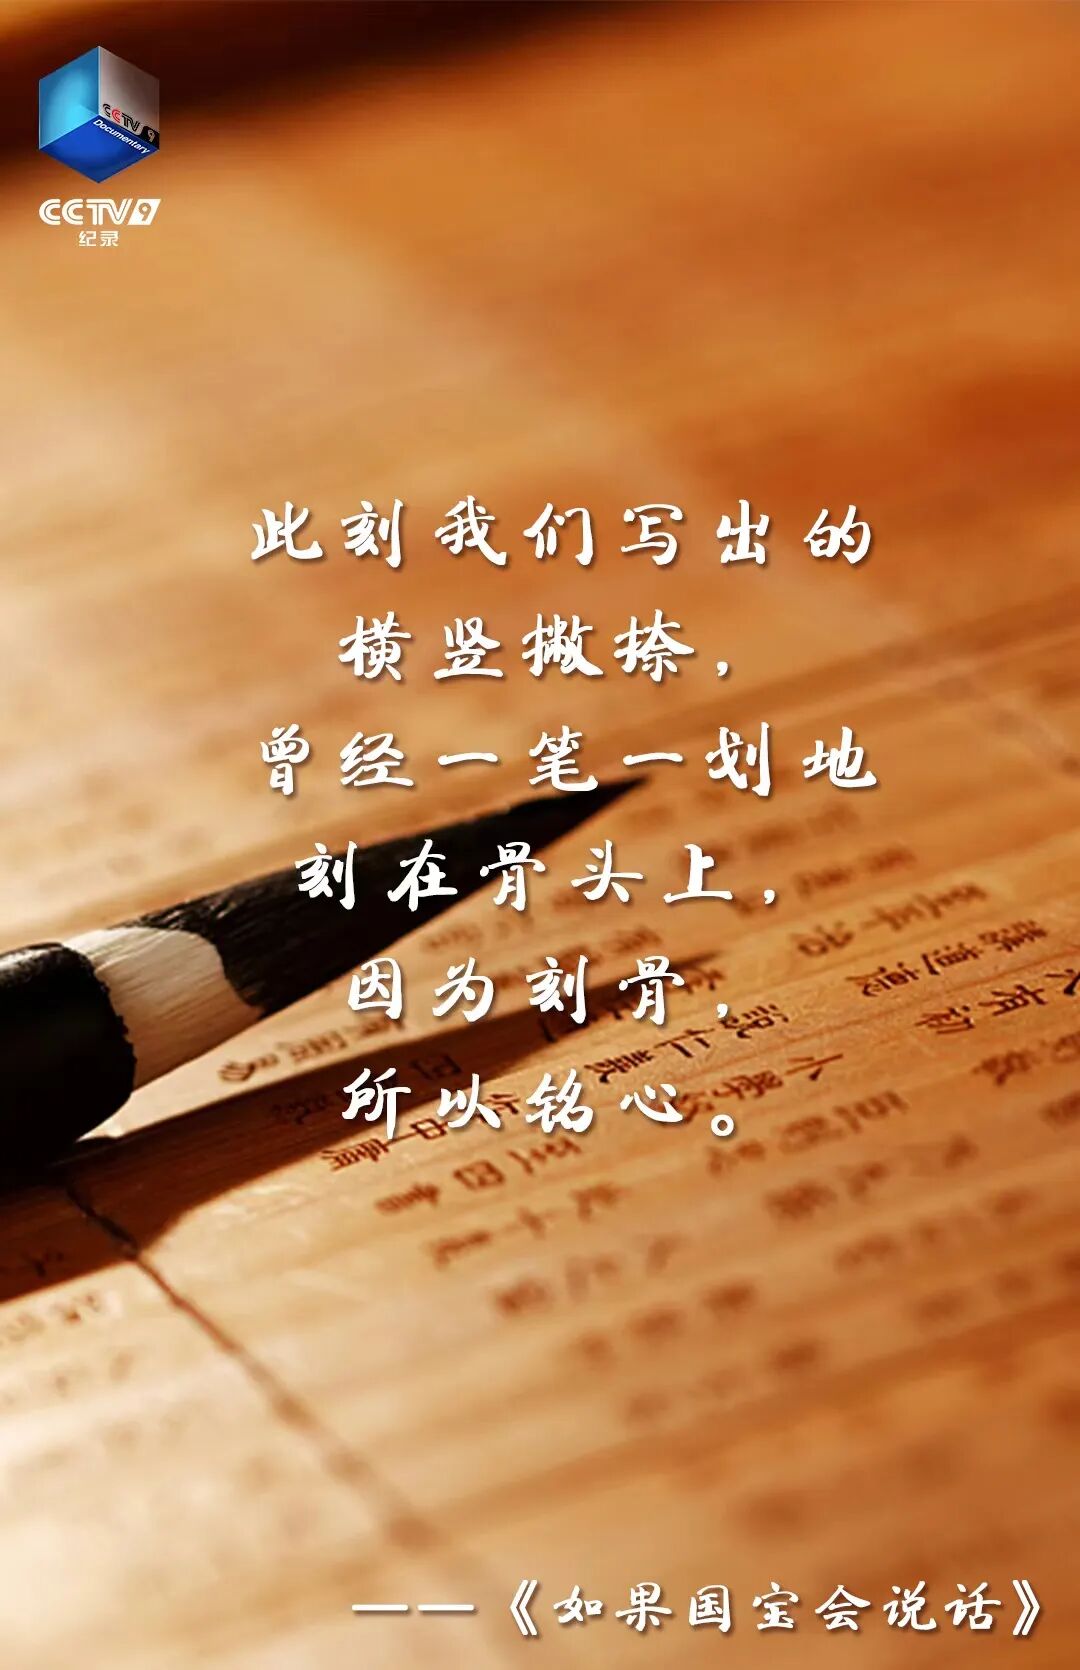 CCTV 9
Documentary
CCTV9
纪录
此刻我们写出的
横竖撇捺，
曾经一笔一划地
刻在骨头上，
因为刻骨，
所以铭心。
——《如果国宝会说话》